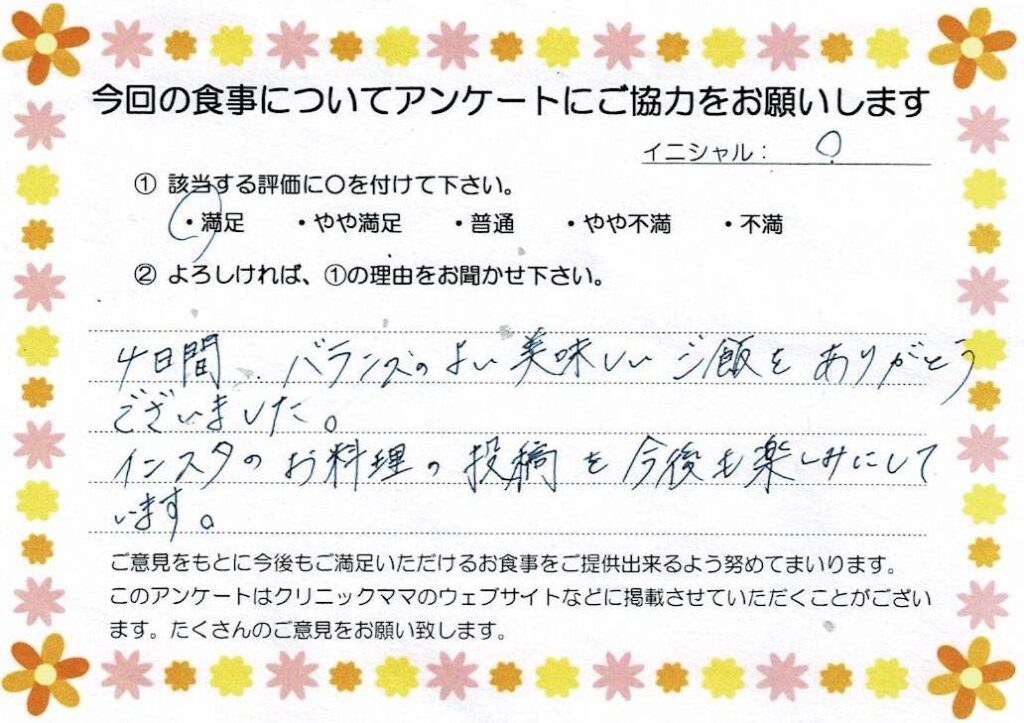 今回の食事についてアンケートにご協力をお願いします
イニシャル： O
① 該当する評価に○を付けて下さい。
・満足 ・やや満足 ・普通 ・やや不満 ・不満
② よろしければ、①の理由をお聞かせ下さい。
4日間、バランスのよい美味しいご飯をありがとう
ございました。
インスタのお料理の投稿を今後も楽しみにして
います。
ご意見をもとに今後もご満足いただけるお食事をご提供出来るよう努めてまいります。
このアンケートはクリニックママのウェブサイトなどに掲載させていただくことがござい
ます。たくさんのご意見をお願い致します。